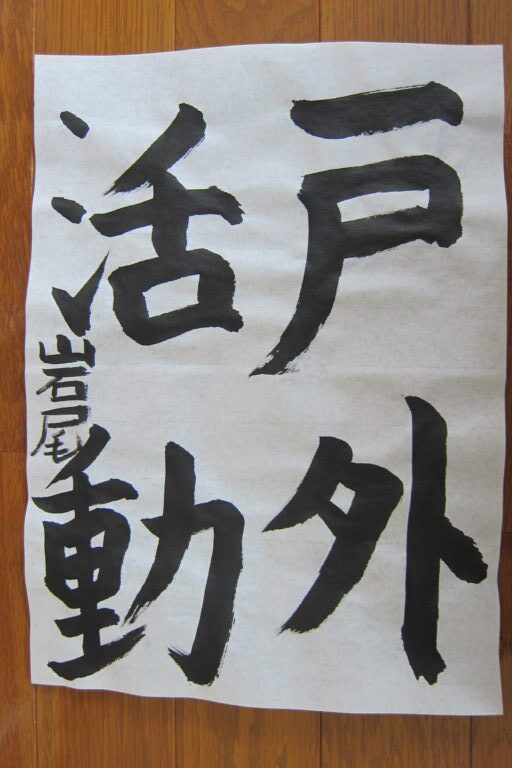 戸外
活動
岩尾